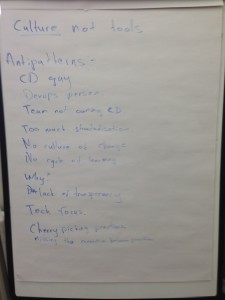 Culture not tools
Antipatterns:-
CD guy
Devops person
Team not owning CD
Too much standardisation
No culture of change
No cycle of learning
Why?
lack of transparency
Tech focus
Cherry picking practices